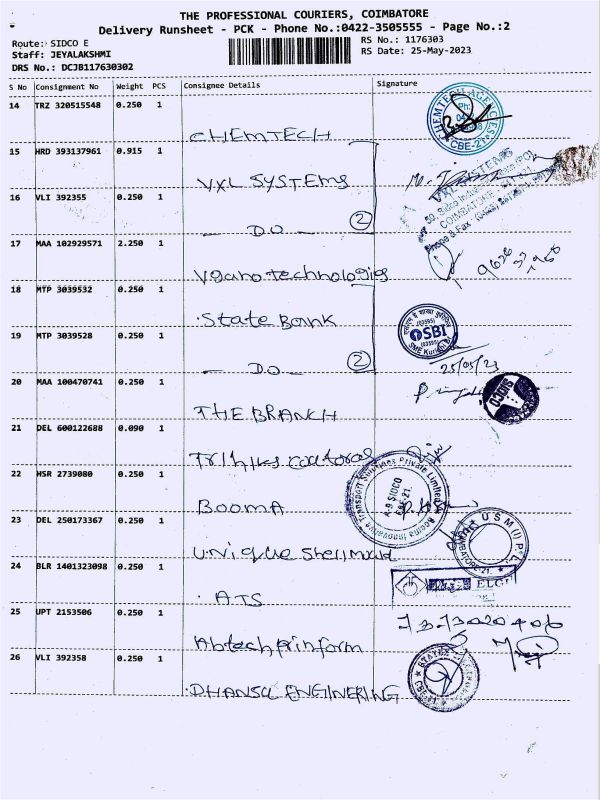 THE PROFESSIONAL COURIERS, COIMBATORE
Delivery Runsheet - PCK - Phone No.:0422-3505555 - Page No.:2
Route: SIDCO E
RS No.: 1176303
Staff: JEYALAKSHMI
RS Date: 25-May-2023
DRS No.: DCJB117630302
S No Consignment No Weight PCS Consignee Details Signature
14 TRZ 320515548 0.250 1
CHEMTECH
CHEMTECH AGENCIES
CBE-21
15 HRD 393137961 0.915 1
VXL SYSTEMS
VXL SYSTEMS
COIMBATORE
16 VLI 392355 0.250 1
— DO — 2
17 MAA 102929571 2.250 1
Vgano technologies
18 MTP 3039532 0.250 1
State Bank
SBI
19 MTP 3039528 0.250 1
— DO — 2
25/05/23
20 MAA 100470741 0.250 1
THE BRANCH
SIDCO
21 DEL 600122688 0.090 1
22 HSR 2739080 0.250 1
BOOMA
Booma Innovative Transport Solutions Private Limited
K-9 SIDCO
CBE-21.
23 DEL 250173367 0.250 1
Unique Shell mould
U S M (I) P. L
24 BLR 1401323098 0.250 1
ATS
ELGI
25 UPT 2153506 0.250 1
Abtech prinform
26 VLI 392358 0.250 1
DHANSU ENGINERING